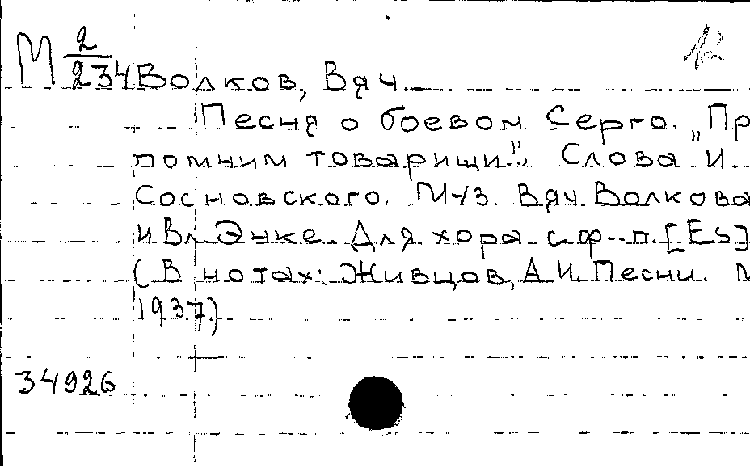 М 2/234 Волков, Вяч.
Песня о боевом Серго. „Пр
помним товарищи!" Слова И
Сосновского. Муз. Вяч. Волкова
и Вл Энке. Для хора с ф-п. [Es]
(В нотах: Живцов, А.И. Песни. М
1937.)
34926